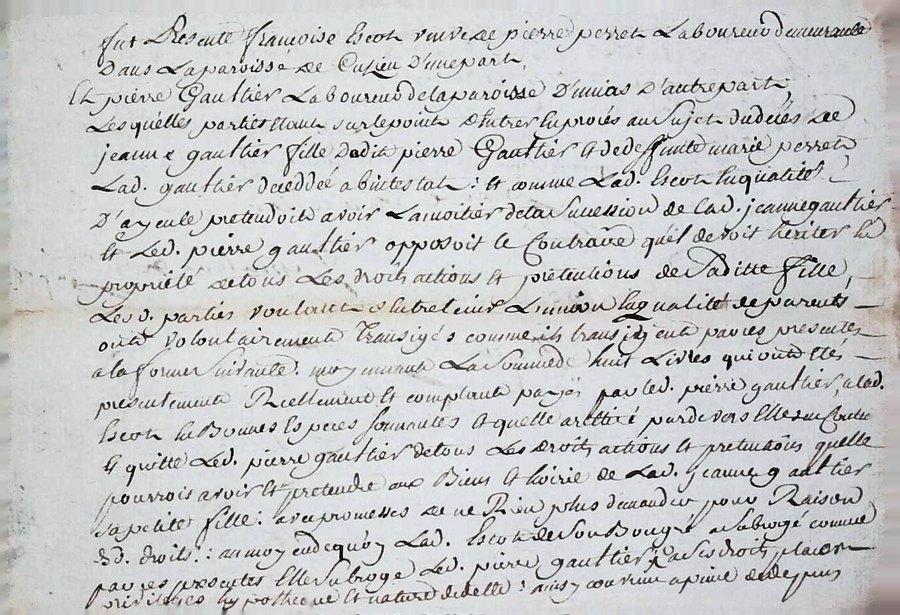 fut Presente francoise Escot veuve de pierre perret Laboureur demeurante
Dans La paroisse de Cuzieu D'unepart,
Et pierre Gaultier Laboureur delaparoisse D'unias D'autrepart,
Lesquelles parties Etant sur le point d'entrer en procés au Sujet dudécés de
jeanne gaultier fille Dudit pierre Gaultier Et de deffunte marie perret
Lad. gaultier deceddeé abintestat : Et comme Lad. Escot En qualité
D'ayeule pretendoit avoir Lamoitier dela Sucession de Lad. jeanne gaultier
Et Led. pierre gaultier opposoit le Contraire quil devoit hériter En
propriété detous Les droits actions Et prétentions de Saditte fille,
Lesd. parties voulant Entretenir Lunion En qualité de parents,
ont volontairement transigés comme ils transigent par ces presentes
a la forme Suivante. moyennant La Somme de huit Livres qui ont Etés
presentement Reellement Et comptant payés par led. pierre gaultier, alad.
Escot En Bonnes Especes Sonnantes Et quelle a retiré pardevers Elle
Et quitte Led. pierre gaultier detous Les droits actions Et pretentions quelle
pourrois avoir Et pretendre aux Biens Et hoirie de Lad. jeanne gaultier
Sa petite fille : avec promesses de ne Rien plus demander pour Raison
desd. droits : au moyen dequoy Lad. Escot de Son Bongré a Subrogé comme
par ces presentes Elle Subroge Led. pierre gaultier a Ses droits, place
privileges hypotheque Et nature dicelle : ainsy convenu a peine de